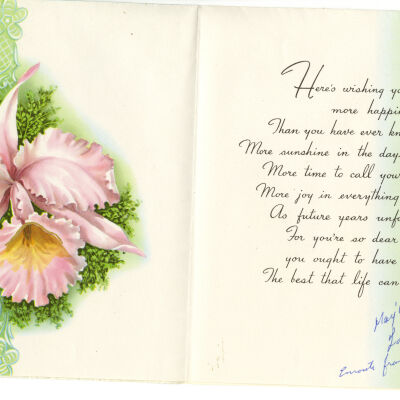 Here's wishing yo
more happin
Than you have ever kn
More sunshine in the days
More time to call you
More joy in everything
As future years unfo
For you're so dear
you ought to have
The best that life can
May
Enroute from